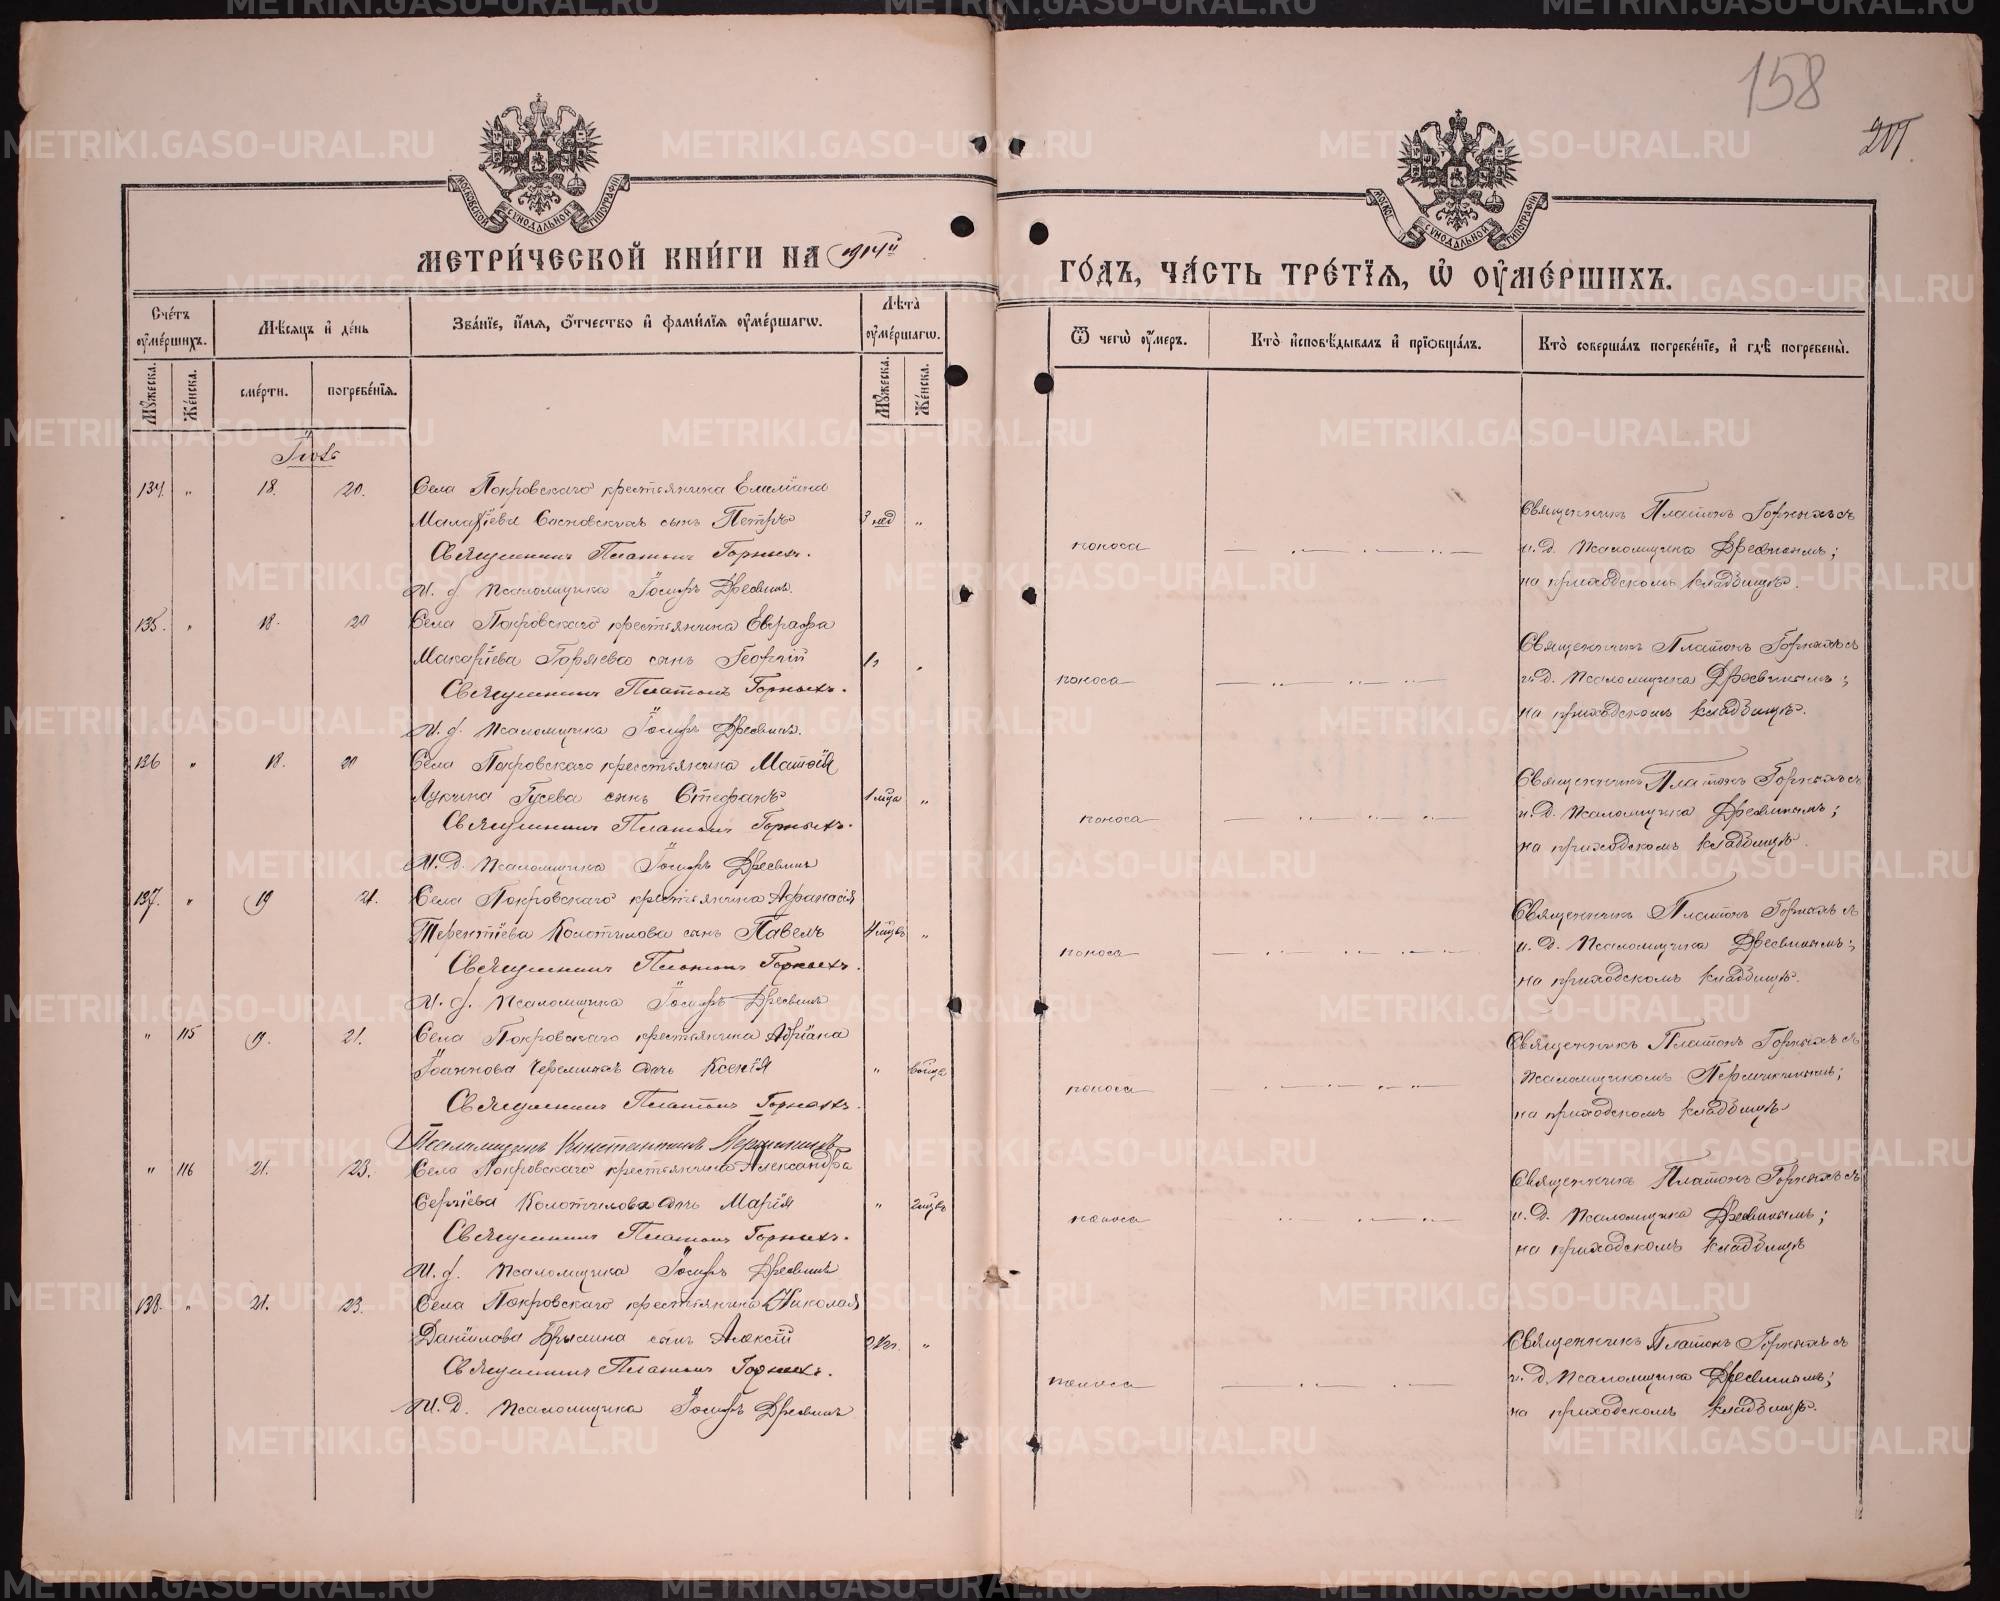 158
201
МОСКОВСКОЙ СѴНОДАЛЬНОЙ ТИПОГРАФІИ
МЕТРИ́ЧЕСКОЙ КНИ́ГИ НА 1914й
ГО́ДЪ, ЧА́СТЬ ТРЕ́ТІѦ, Ѡ ОУМЕ́РШИХЪ.
Сче́тъ оумершихъ.
Мѣсяцъ и де́нь
Зва́ніе, и́мя, о́тчество и фами́лія оумершагѡ.
Лѣта̀ оумершагѡ.
Ѿ чегѡ̀ оумеръ.
Кто̀ исповѣ́дывалъ и прїобща́лъ.
Кто̀ соверша́лъ погребе́ніе, и гдѣ̀ погребены̀.
Му́жеска.
Же́нска.
сме́рти.
погребе́нія.
Му́жеска.
Же́нска.
Іюль
134. " 18. 20. Села Покровскаго крестьянина Емеліана
Малахіева Сосновскихъ сынъ Петръ 3 нед "
Священникъ Платонъ Горныхъ.
И. д. Псаломщика Іосифъ Дресвинъ.
поноса
Священникъ Платонъ Горныхъ съ
и. д. Псаломщика Дресвинымъ;
на приходскомъ кладбищѣ.
135. " 18. 20 Села Покровскаго крестьянина Евграфа
Макаріева Горяева сынъ Георгій "
Священникъ Платонъ Горныхъ.
И. д. Псаломщика Іосифъ Дресвинъ.
поноса
Священникъ Платонъ Горныхъ съ
и. д. Псаломщика Дресвинымъ;
на приходскомъ кладбищѣ.
136 " 18. 20 Села Покровскаго крестьянина Матѳія
Лукина Гусева сынъ Стефанъ 1 мца "
Священникъ Платонъ Горныхъ.
И. Д. Псаломщика Іосифъ Дресвинъ
поноса
Священникъ Платонъ Горныхъ съ
и. д. Псаломщика Дресвинымъ;
на приходскомъ кладбищѣ.
137. " 19 21. Села Покровскаго крестьянина Афанасія
Терентіева Колотилова сынъ Павелъ 4 мцевъ "
Священникъ Платонъ Горныхъ.
И. д. Псаломщика Іосифъ Дресвинъ
поноса
Священникъ Платонъ Горныхъ съ
и. д. Псаломщика Дресвинымъ;
на приходскомъ кладбищѣ.
" 115 19. 21. Села Покровскаго крестьянина Адріана
Іоаннова Черемныхъ дочь Ксенія "
Священникъ Платонъ Горныхъ.
Псаломщикъ Константинъ
поноса
Священникъ Платонъ Горныхъ съ
псаломщикомъ
на приходскомъ кладбищѣ
" 116 21. 23. Села Покровскаго крестьянина Александра
Сергіева Колотилова дочь Марія " 2 мцевъ
Священникъ Платонъ Горныхъ.
И. д. Псаломщика Іосифъ Дресвинъ
поноса
Священникъ Платонъ Горныхъ съ
и. д. Псаломщика Дресвинымъ;
на приходскомъ кладбищѣ
138. " 21. 23. Села Покровскаго крестьянина Николая
Даніилова Брылина сынъ Алексій "
Священникъ Платонъ Горныхъ.
И. Д. Псаломщика Іосифъ Дресвинъ
поноса
Священникъ Платонъ Горныхъ съ
и. д. Псаломщика Дресвинымъ;
на приходскомъ кладбищѣ.
METRIKI.GASO-URAL.RU